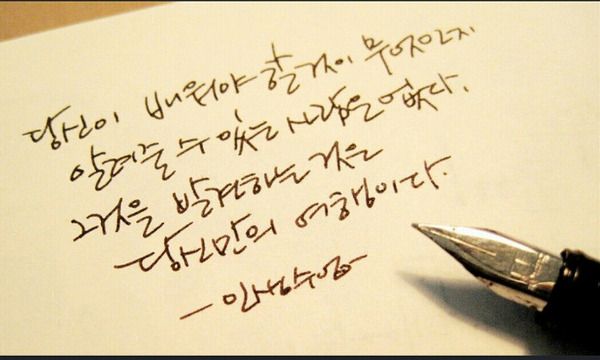 당신이 배워야 할것이 무엇인지
알려줄 수 있는 사람은 없다.
그것을 발견하는 것은
당신만의 여행이다.
– 인생수업